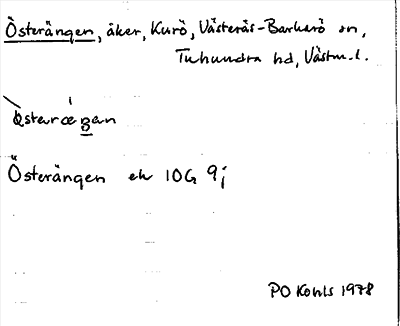 Österängen, åker, Kurö, Västerås-Barkarö sn,
Tuhundra hd, Västm. l.
Österängen ek 10G 9j
PO Kohls 1978